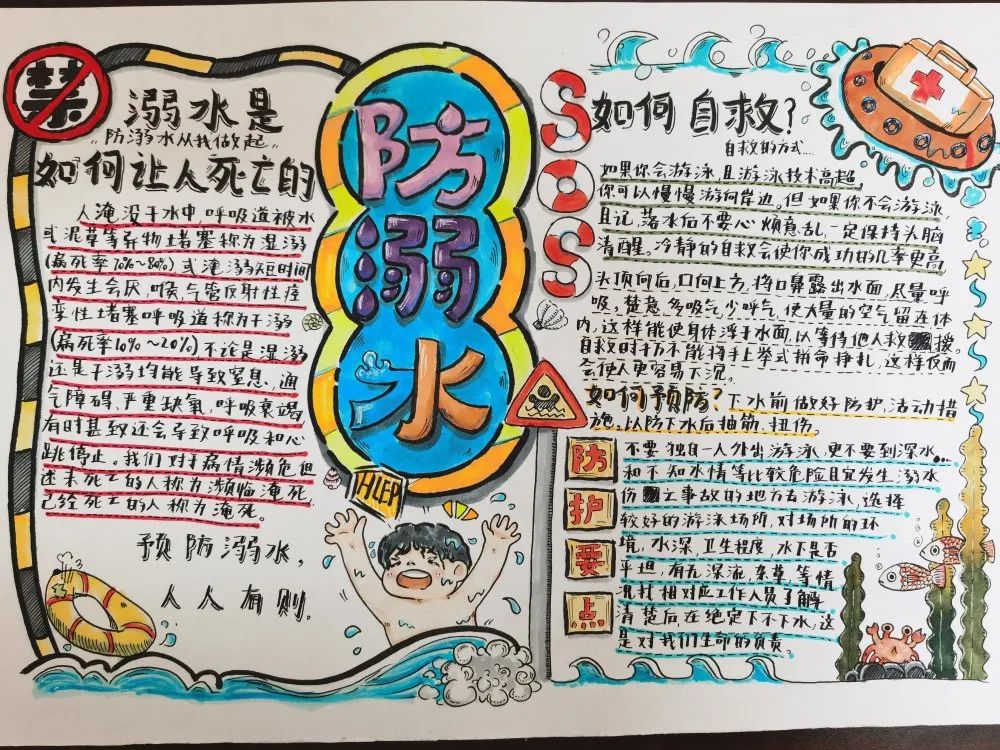 禁
溺水是
“防溺水从我做起”
如何让人死亡的
人淹没于水中呼吸道被水
或泥草等异物堵塞称为湿溺
(病死率70%~80%)或淹溺短时间
内发生会厌,喉,气管反射性痉
挛性堵塞呼吸道称为干溺
(病死率10%~20%)不论是湿溺
还是干溺均能导致窒息、通
气障碍、严重缺氧,呼吸衰竭
有时甚致还会导致呼吸和心
跳停止。我们对于病情濒危但
还未死亡的人称为濒临淹死
已经死亡的人称为淹死。
预防溺水,
人人有则.
防
溺
水
HLEP
SOS
如何自救?
自救的方式...
如果你会游泳,且游泳技术高超,
你可以慢慢游向岸边。但如果你不会游泳,
且记,落水后不要心烦意乱,一定保持头脑
清醒。冷静的自救会使你成功的几率更高
头顶向后,口向上方,将口鼻露出水面,尽量呼
吸。楚意多吸气,少呼气,使大量的空气留连体
内,这样能使身体浮于水面,以等待他人救援。
自救时扐不能将手上举式拼命挣扎,这样反而
会使人更容易下沉。
如何预防?下水前做好防护,活动措
施。以防下水后抽筋、扭伤。
防护要点
不要独自一人外出游泳,更不要到深水...
和不知水情等比较危险且宜发生溺水
伤之事故的地方去游泳,选择
较好的游泳场所,对场所的环
境,水深,卫生程度,水下是否
平坦,有无深流,杂草等情
况找相对应工作人员了解
清楚后,在绝定下不下水,这
是对我们生命的负责。